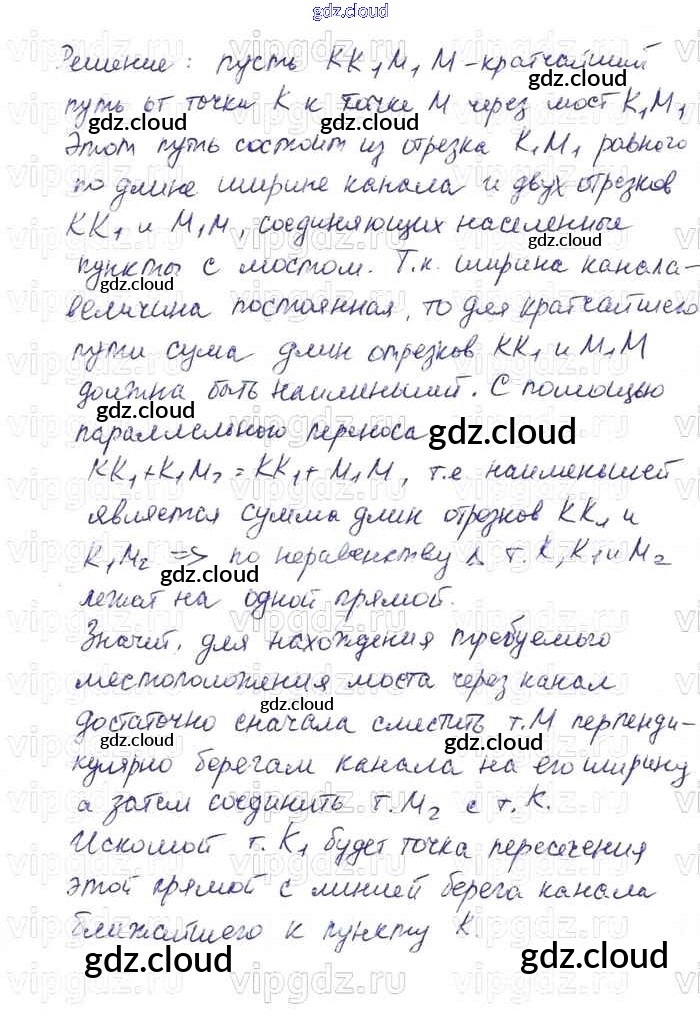 gdz.cloud
Решение: пусть KK₁M₁M - кратчайший
путь от точки K к точке M через мост K₁M₁
Этот путь состоит из отрезка K₁M₁ равного
по длине ширине канала и двух отрезков
KK₁ и M₁M, соединяющих населенные
пункты с мостом. Т.к. ширина канала -
величина постоянная, то для кратчайшего
пути сума длин отрезков KK₁ и M₁M
должна быть наименьшей. С помощью
параллельного переноса
KK₁+K₁M₂=KK₁+M₁M, т.е. наименьшей
является сумма длин отрезков KK₁ и
K₁M₂ => по неравенству Δ т. K, K₁ и M₂
лежат на одной прямой.
Значит, для нахождения требуемого
местоположения моста через канал
достаточно сначала сместить т. M перпенди-
кулярно берегам канала на его ширину,
а затем соединить т. M₂ с т. K.
Искомой т. K₁ будет точка пересечения
этой прямой с линией берега канала
ближайшего к пункту K.
gdz.cloud gdz.cloud